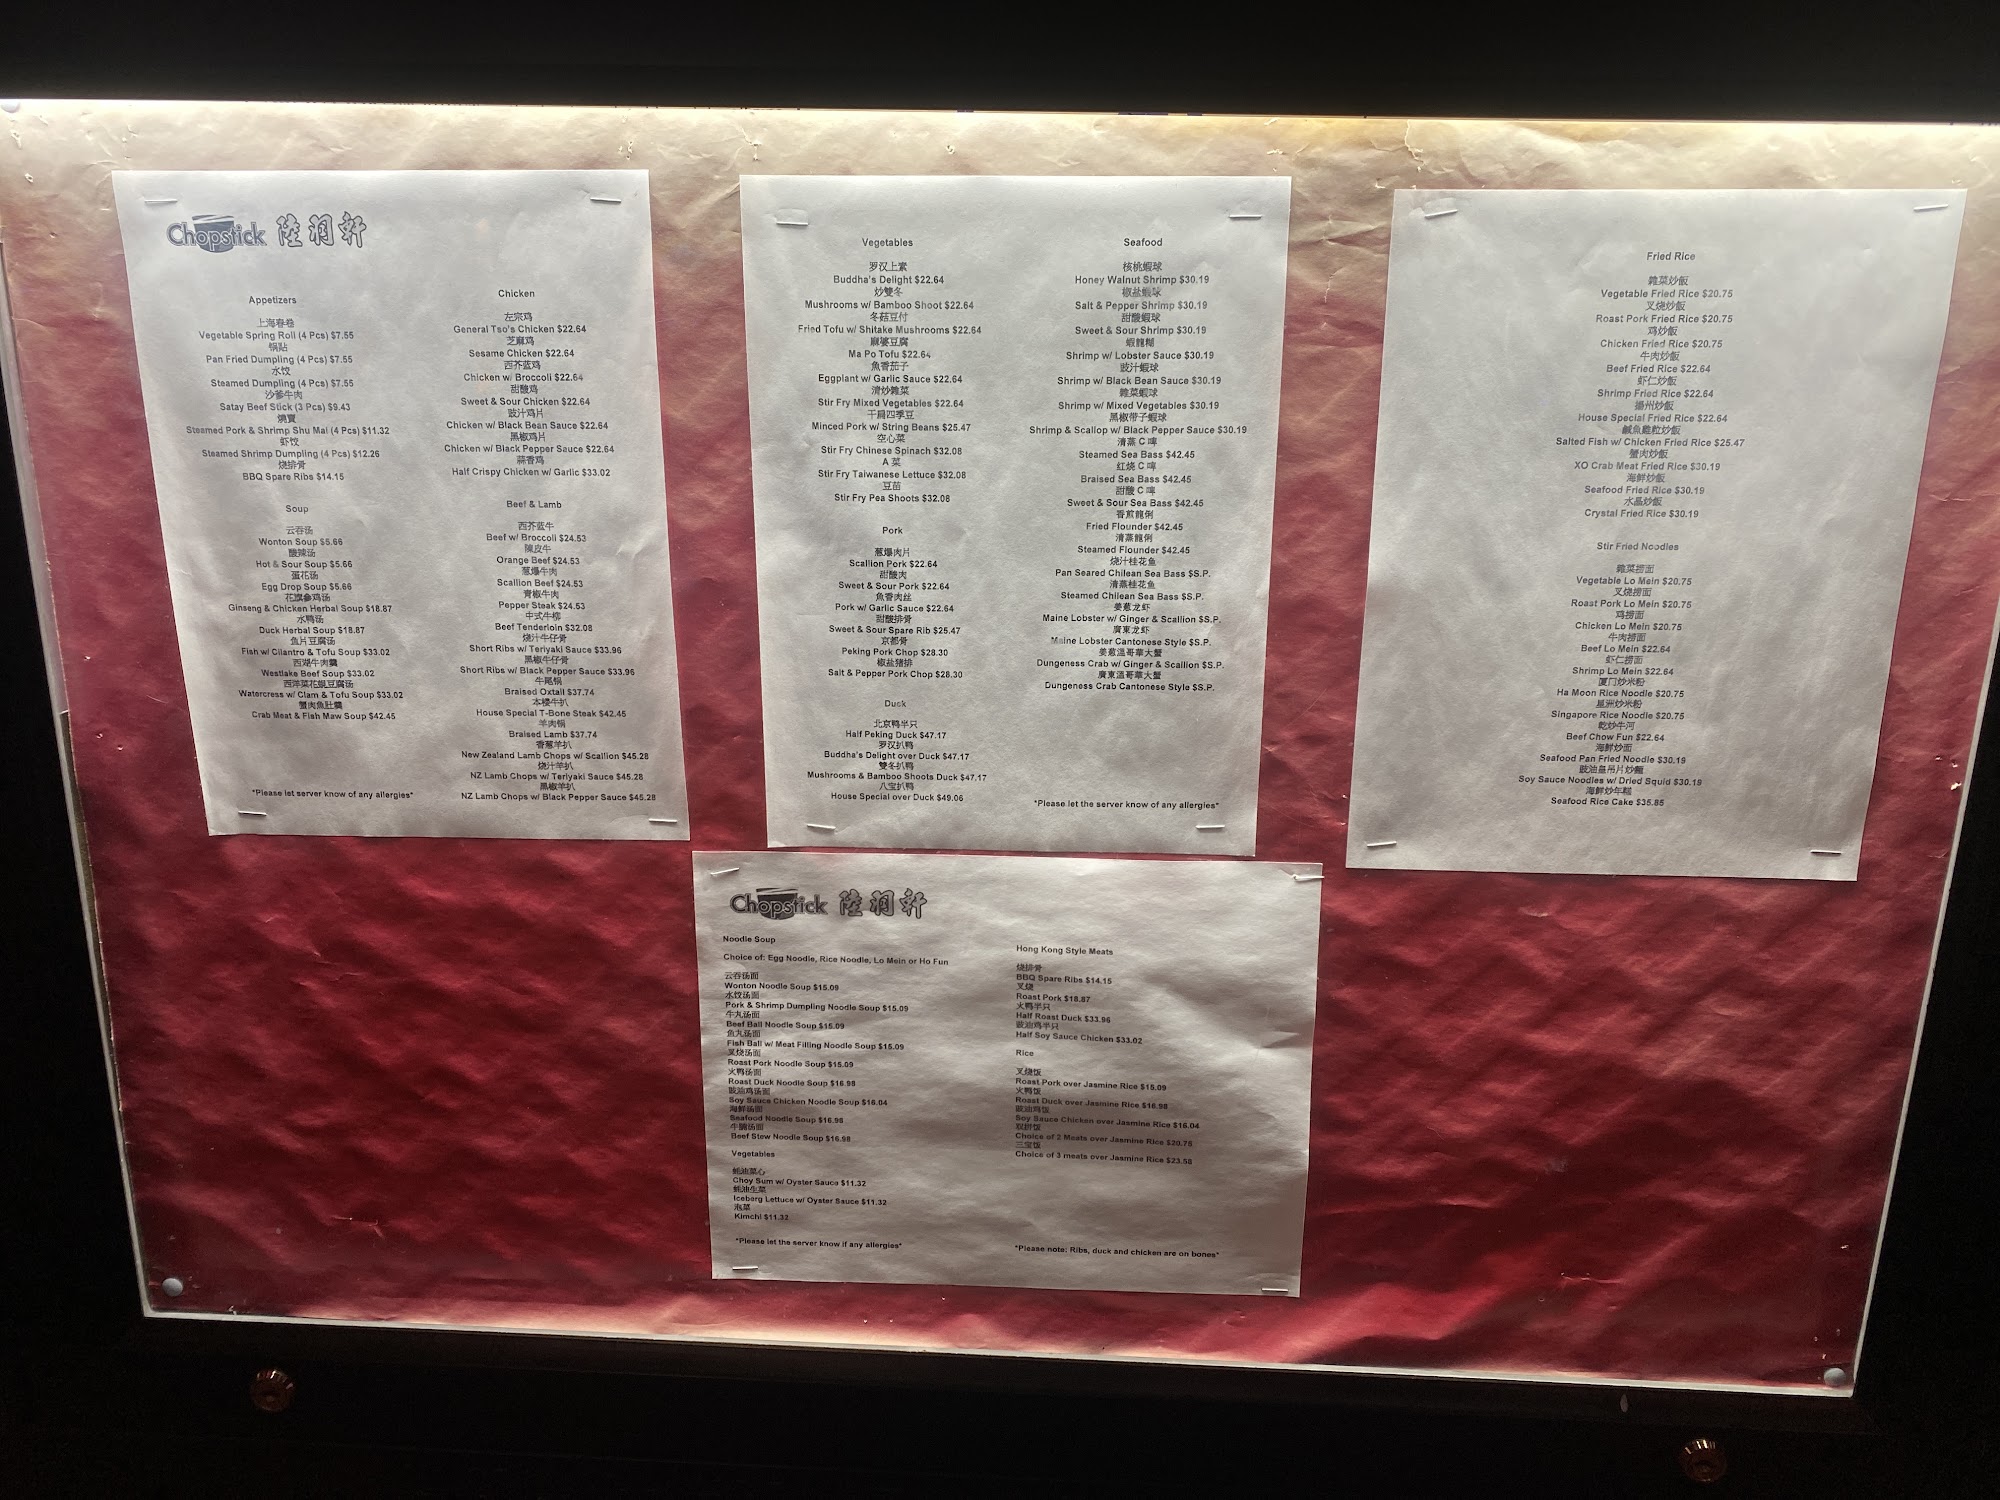 Chopstick 陸羽軒
Appetizers
上海春卷
Vegetable Spring Roll (4 Pcs) $7.55
锅贴
Pan Fried Dumpling (4 Pcs) $7.55
水饺
Steamed Dumpling (4 Pcs) $7.55
沙爹牛肉
Satay Beef Stick (3 Pcs) $9.43
燒賣
Steamed Pork & Shrimp Shu Mai (4 Pcs) $11.32
虾饺
Steamed Shrimp Dumpling (4 Pcs) $12.26
烧排骨
BBQ Spare Ribs $14.15
Soup
云吞汤
Wonton Soup $5.66
酸辣汤
Hot & Sour Soup $5.66
蛋花汤
Egg Drop Soup $5.66
花旗參鸡汤
Ginseng & Chicken Herbal Soup $18.87
水鸭汤
Duck Herbal Soup $18.87
魚片豆腐汤
Fish w/ Cilantro & Tofu Soup $33.02
西湖牛肉羹
Westlake Beef Soup $33.02
西洋菜花蚬豆腐汤
Watercress w/ Clam & Tofu Soup $33.02
蟹肉魚肚羹
Crab Meat & Fish Maw Soup $42.45
*Please let server know of any allergies*
Chicken
左宗鸡
General Tso's Chicken $22.64
芝麻鸡
Sesame Chicken $22.64
西芥蓝鸡
Chicken w/ Broccoli $22.64
甜酸鸡
Sweet & Sour Chicken $22.64
豉汁鸡片
Chicken w/ Black Bean Sauce $22.64
黑椒鸡片
Chicken w/ Black Pepper Sauce $22.64
蒜香鸡
Half Crispy Chicken w/ Garlic $33.02
Beef & Lamb
西芥蓝牛
Beef w/ Broccoli $24.53
陳皮牛
Orange Beef $24.53
葱爆牛肉
Scallion Beef $24.53
青椒牛肉
Pepper Steak $24.53
中式牛柳
Beef Tenderloin $32.08
烧汁牛仔骨
Short Ribs w/ Teriyaki Sauce $33.96
黑椒牛仔骨
Short Ribs w/ Black Pepper Sauce $33.96
牛尾锅
Braised Oxtail $37.74
本楼牛扒
House Special T-Bone Steak $42.45
羊肉锅
Braised Lamb $37.74
香葱羊扒
New Zealand Lamb Chops w/ Scallion $45.28
烧汁羊扒
NZ Lamb Chops w/ Teriyaki Sauce $45.28
黑椒羊扒
NZ Lamb Chops w/ Black Pepper Sauce $45.28
Vegetables
罗汉上素
Buddha's Delight $22.64
炒雙冬
Mushrooms w/ Bamboo Shoot $22.64
冬菇豆付
Fried Tofu w/ Shitake Mushrooms $22.64
麻婆豆腐
Ma Po Tofu $22.64
魚香茄子
Eggplant w/ Garlic Sauce $22.64
清炒雜菜
Stir Fry Mixed Vegetables $22.64
干扁四季豆
Minced Pork w/ String Beans $25.47
空心菜
Stir Fry Chinese Spinach $32.08
A 菜
Stir Fry Taiwanese Lettuce $32.08
豆苗
Stir Fry Pea Shoots $32.08
Pork
葱爆肉片
Scallion Pork $22.64
甜酸肉
Sweet & Sour Pork $22.64
魚香肉丝
Pork w/ Garlic Sauce $22.64
甜酸排骨
Sweet & Sour Spare Rib $25.47
京都骨
Peking Pork Chop $28.30
椒盐猪排
Salt & Pepper Pork Chop $28.30
Duck
北京鸭半只
Half Peking Duck $47.17
罗汉扒鸭
Buddha's Delight over Duck $47.17
雙冬扒鸭
Mushrooms & Bamboo Shoots Duck $47.17
八宝扒鸭
House Special over Duck $49.06
Seafood
核桃蝦球
Honey Walnut Shrimp $30.19
椒盐蝦球
Salt & Pepper Shrimp $30.19
甜酸蝦球
Sweet & Sour Shrimp $30.19
蝦龍糊
Shrimp w/ Lobster Sauce $30.19
豉汁蝦球
Shrimp w/ Black Bean Sauce $30.19
雜菜蝦球
Shrimp w/ Mixed Vegetables $30.19
黑椒带子蝦球
Shrimp & Scallop w/ Black Pepper Sauce $30.19
清蒸 C 啤
Steamed Sea Bass $42.45
红烧 C 啤
Braised Sea Bass $42.45
甜酸 C 啤
Sweet & Sour Sea Bass $42.45
香煎龍俐
Fried Flounder $42.45
清蒸龍俐
Steamed Flounder $42.45
烧汁桂花鱼
Pan Seared Chilean Sea Bass $S.P.
清蒸桂花鱼
Steamed Chilean Sea Bass $S.P.
姜葱龙虾
Maine Lobster w/ Ginger & Scallion $S.P.
廣東龙虾
Maine Lobster Cantonese Style $S.P.
姜葱溫哥華大蟹
Dungeness Crab w/ Ginger & Scallion $S.P.
廣東溫哥華大蟹
Dungeness Crab Cantonese Style $S.P.
*Please let the server know of any allergies*
Fried Rice
雜菜炒飯
Vegetable Fried Rice $20.75
叉烧炒飯
Roast Pork Fried Rice $20.75
鸡炒飯
Chicken Fried Rice $20.75
牛肉炒飯
Beef Fried Rice $22.64
虾仁炒飯
Shrimp Fried Rice $22.64
揚州炒飯
House Special Fried Rice $22.64
鹹魚雞粒炒飯
Salted Fish w/ Chicken Fried Rice $25.47
蟹肉炒飯
XO Crab Meat Fried Rice $30.19
海鮮炒飯
Seafood Fried Rice $30.19
水晶炒飯
Crystal Fried Rice $30.19
Stir Fried Noodles
雜菜捞面
Vegetable Lo Mein $20.75
叉烧捞面
Roast Pork Lo Mein $20.75
鸡捞面
Chicken Lo Mein $20.75
牛肉捞面
Beef Lo Mein $22.64
虾仁捞面
Shrimp Lo Mein $22.64
厦门炒米粉
Ha Moon Rice Noodle $20.75
星洲炒米粉
Singapore Rice Noodle $20.75
乾炒牛河
Beef Chow Fun $22.64
海鮮炒面
Seafood Pan Fried Noodle $30.19
豉油皇吊片炒麵
Soy Sauce Noodles w/ Dried Squid $30.19
海鮮炒年糕
Seafood Rice Cake $35.85
Chopstick 陸羽軒
Noodle Soup
Choice of: Egg Noodle, Rice Noodle, Lo Mein or Ho Fun
云吞汤面
Wonton Noodle Soup $15.09
水饺汤面
Pork & Shrimp Dumpling Noodle Soup $15.09
牛丸汤面
Beef Ball Noodle Soup $15.09
魚丸汤面
Fish Ball w/ Meat Filling Noodle Soup $15.09
叉烧汤面
Roast Pork Noodle Soup $15.09
火鸭汤面
Roast Duck Noodle Soup $16.98
豉油鸡汤面
Soy Sauce Chicken Noodle Soup $16.04
海鮮汤面
Seafood Noodle Soup $16.98
牛腩汤面
Beef Stew Noodle Soup $16.98
Vegetables
蚝油菜心
Choy Sum w/ Oyster Sauce $11.32
蚝油生菜
Iceberg Lettuce w/ Oyster Sauce $11.32
泡菜
Kimchi $11.32
*Please let the server know if any allergies*
Hong Kong Style Meats
烧排骨
BBQ Spare Ribs $14.15
叉烧
Roast Pork $18.87
火鸭半只
Half Roast Duck $33.96
豉油鸡半只
Half Soy Sauce Chicken $33.02
Rice
叉烧饭
Roast Pork over Jasmine Rice $15.09
火鸭饭
Roast Duck over Jasmine Rice $16.98
豉油鸡饭
Soy Sauce Chicken over Jasmine Rice $16.04
双拼饭
Choice of 2 Meats over Jasmine Rice $20.75
三宝饭
Choice of 3 meats over Jasmine Rice $23.58
*Please note: Ribs, duck and chicken are on bones*